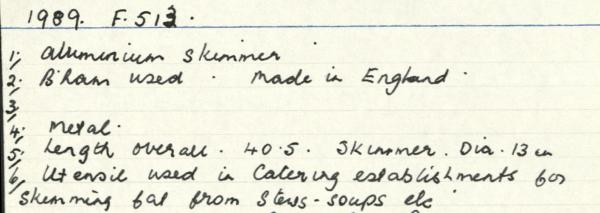 1989. F. 513.
1, aluminium skimmer
2. B'ham used . made in England.
3,
4, metal.
5, Length overall. 40.5. Skimmer. Dia. 13 cm
6, Utensil used in Catering establishments for
skimming fat from Stews - soups etc